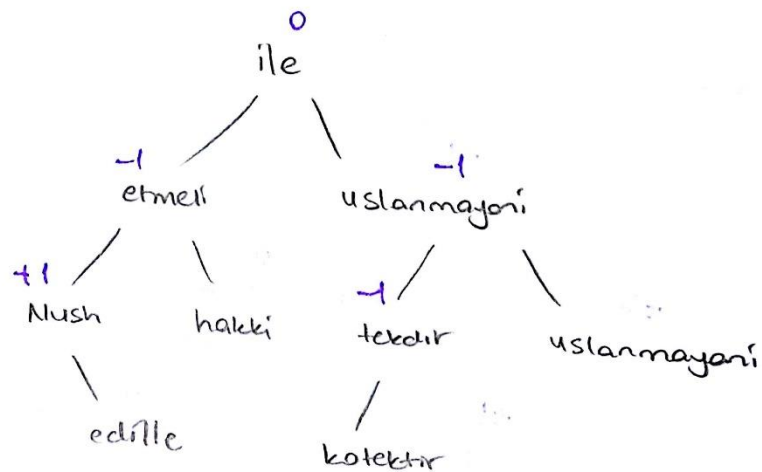 0
ile
-1 -1
etmeli uslanmayani
+1 -1
Nush hakki tekdir uslanmayani
edille kotektir